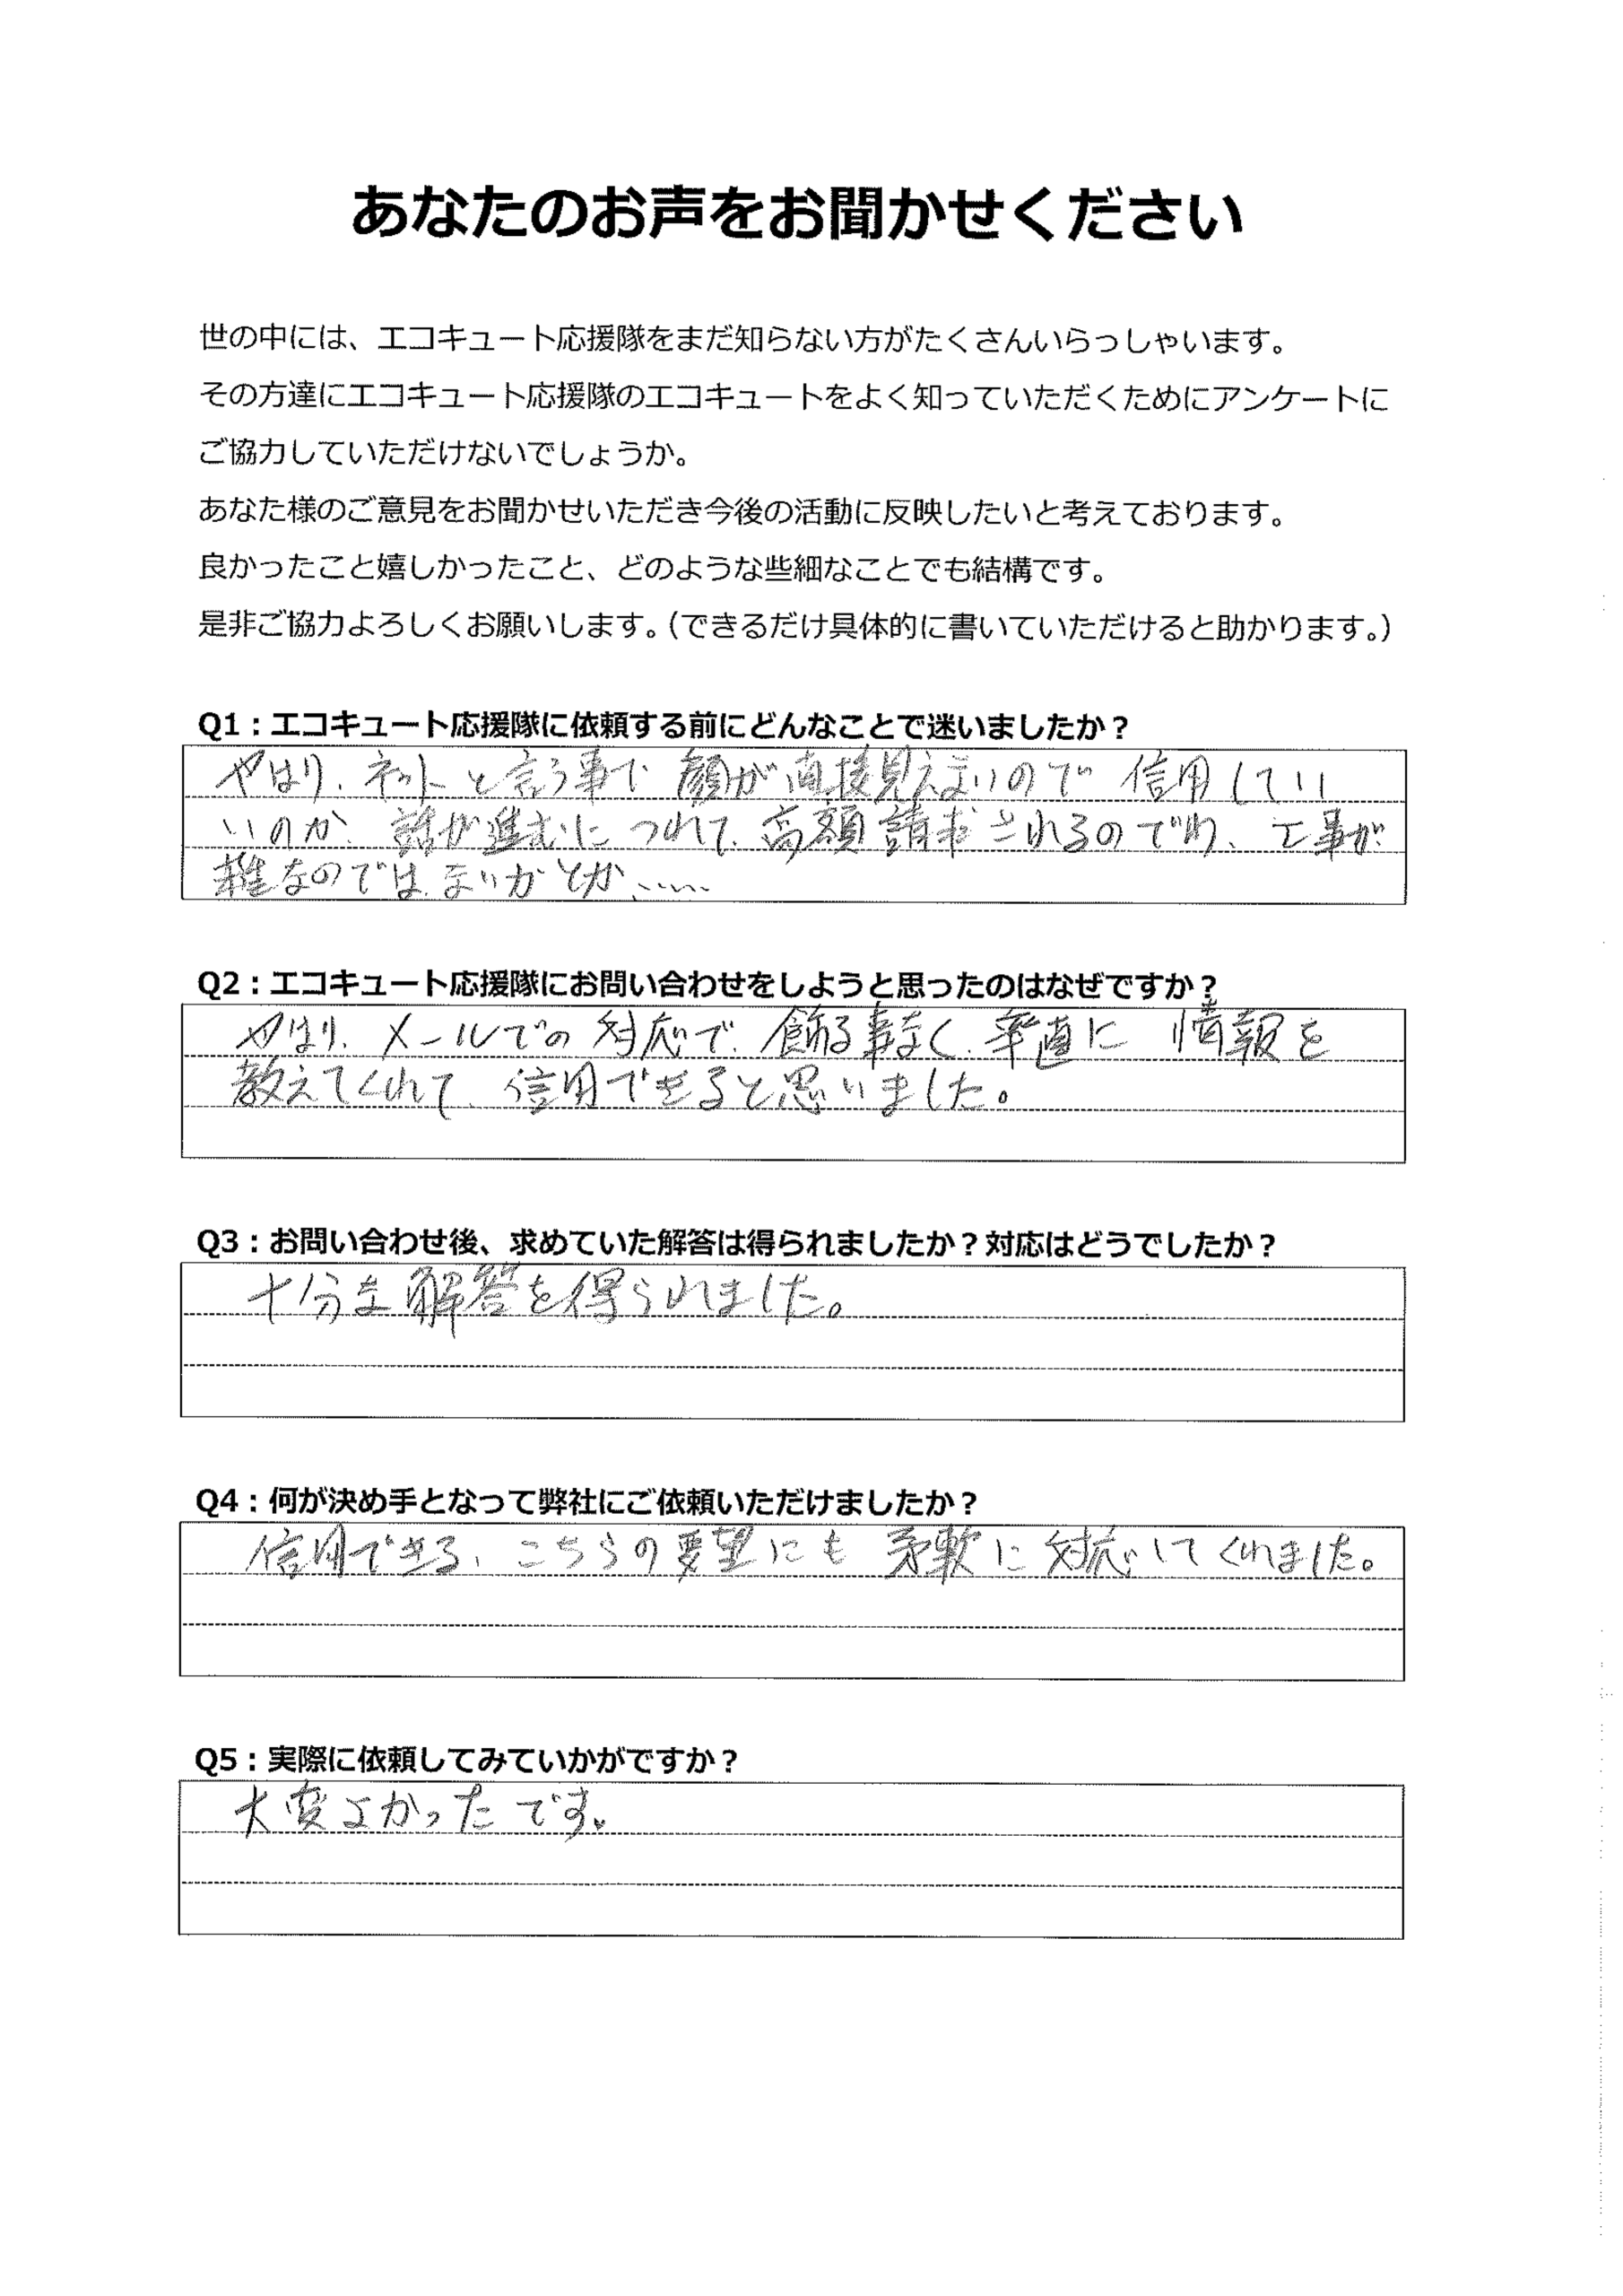 あなたのお声をお聞かせください
世の中には、エコキュート応援隊をまだ知らない方がたくさんいらっしゃいます。
その方達にエコキュート応援隊のエコキュートをよく知っていただくためにアンケートに
ご協力していただけないでしょうか。
あなた様のご意見をお聞かせいただき今後の活動に反映したいと考えております。
良かったこと嬉しかったこと、どのような些細なことでも結構です。
是非ご協力よろしくお願いします。（できるだけ具体的に書いていただけると助かります。）
Q1：エコキュート応援隊に依頼する前にどんなことで迷いましたか？
やはり、ネットと言う事で 顔が直接見えないので 信用してい
いのか、話が進むに つれて、高額請求されるのでわ、工事が
雑なのでは、ないかとか、……
Q2：エコキュート応援隊にお問い合わせをしようと思ったのはなぜですか？
やはり、メールでの対応で、飾る事なく、率直に 情報を
教えてくれて、信用できると思いました。
Q3：お問い合わせ後、求めていた解答は得られましたか？対応はどうでしたか？
十分な解答を得られました。
Q4：何が決め手となって弊社にご依頼いただけましたか？
信用できる、こちらの要望にも 柔軟に対応してくれました。
Q5：実際に依頼してみていかがですか？
大変よかったです。